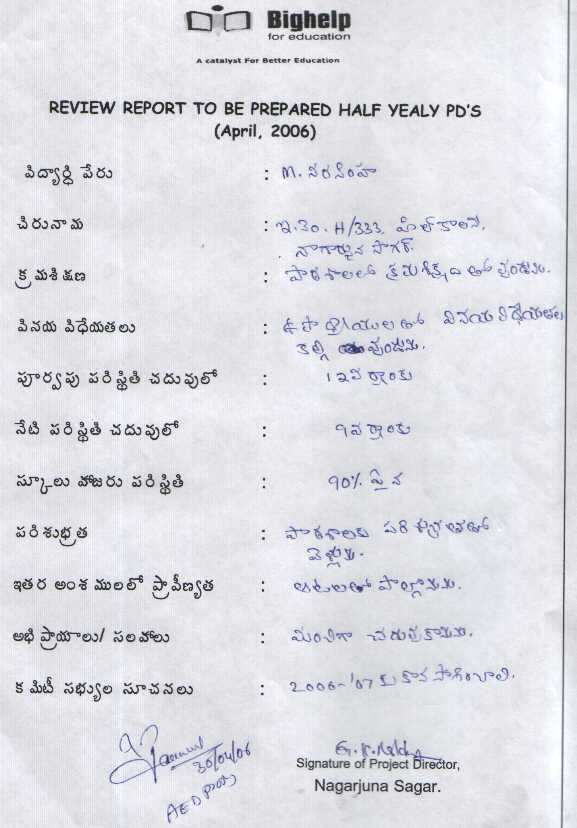 Bighelp
for education
A catalyst For Better Education
REVIEW REPORT TO BE PREPARED HALF YEALY PD'S
(April, 2006)
విద్యార్ధి పేరు : M. నరసింహ
చిరునామ : ఇ.నం. H/333, హిల్ కాలనీ,
నాగార్జున సాగర్.
క్రమశిక్షణ : పాఠశాలలో క్రమశిక్షణ తో వుండును.
వినయ విధేయతలు : ఉపాధ్యాయుల తో వినయ విధేయతలు
కల్గి వుండును.
పూర్వపు పరిస్థితి చదువులో : 12వ ర్యాంకు
నేటి పరిస్థితి చదువులో : 9వ ర్యాంకు
స్కూలు హాజరు పరిస్థితి : 90% పైన
పరిశుభ్రత : పాఠశాలకు పరిశుభ్రతతో
వెళ్లును.
ఇతర అంశములలో ప్రావీణ్యత : ఆటలతో పాల్గొనును.
అభిప్రాయాలు/ సలహాలు : మంచిగా చదువుకొనును.
కమిటీ సభ్యుల సూచనలు : 2006-'07 కు కొనసాగించాలి.
30/04/06
AED
Signature of Project Director,
Nagarjuna Sagar.